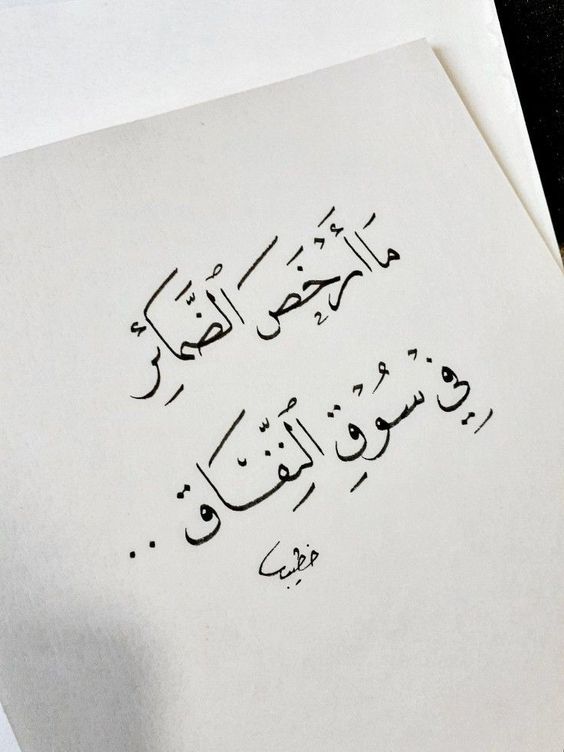 مَا أَرْخَصَ ٱلضَّمَائِر
فِي سُوْقِ ٱلنِّفَاق ..
خطيب